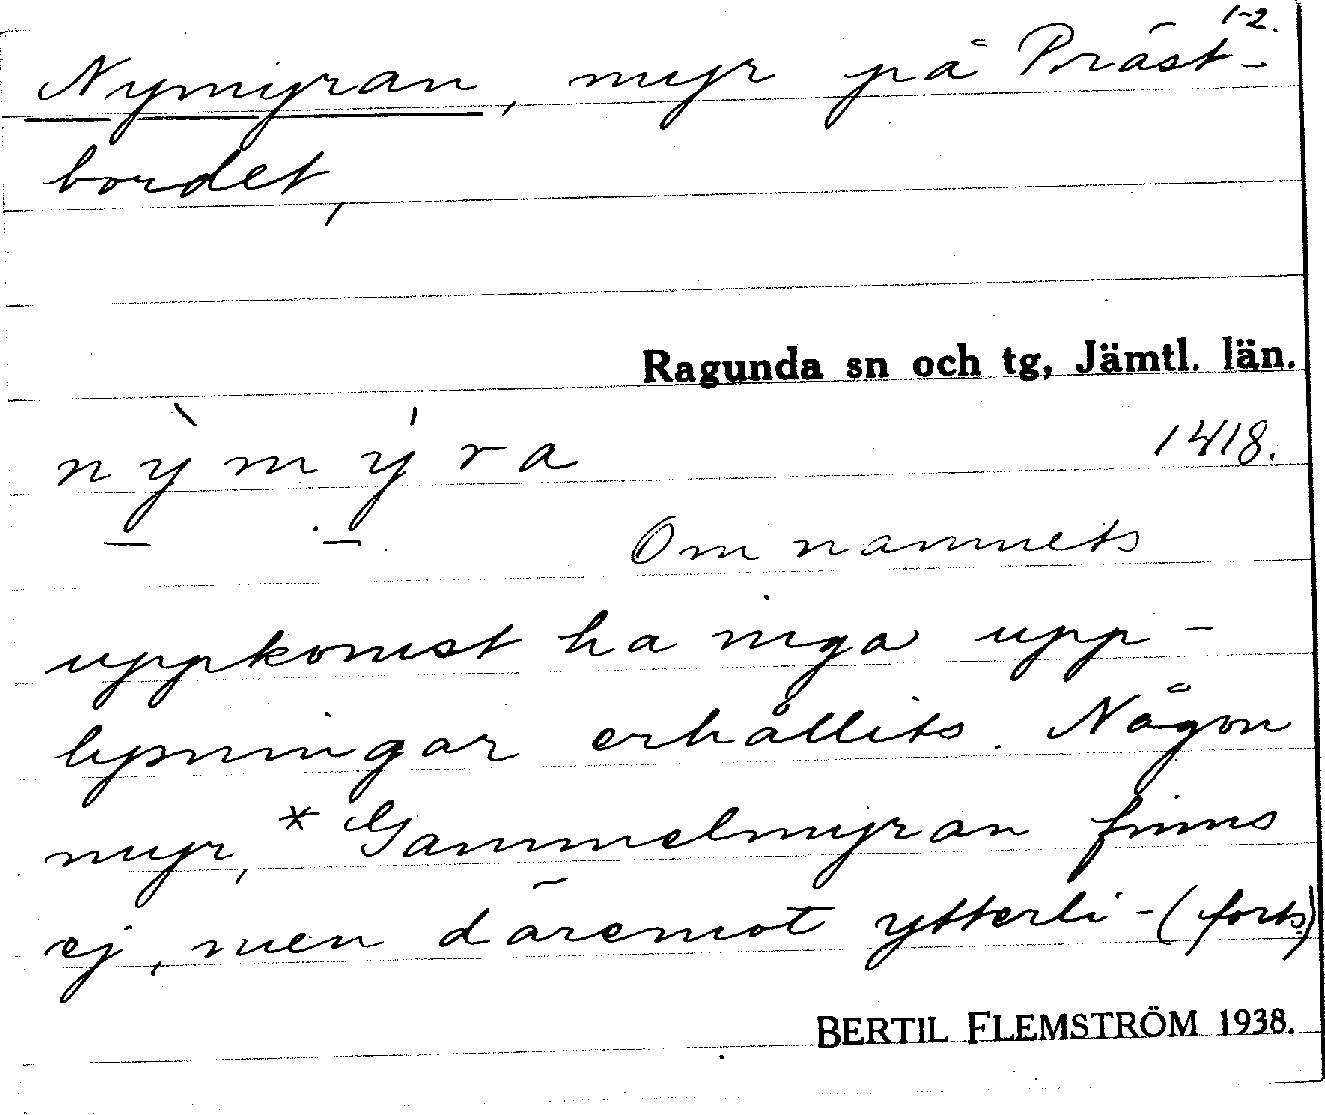 1-2.
Nymyran, myr på Präst-
bordet,
Ragunda sn och tg, Jämtl. län.
nỳmýra 1418.
Om namnets
uppkomst ha inga upp-
lysningar erhållits. Någon
myr, *Gammelmyran finns
ej, men däremot ytterli- (forts)
BERTIL FLEMSTRÖM 1938.